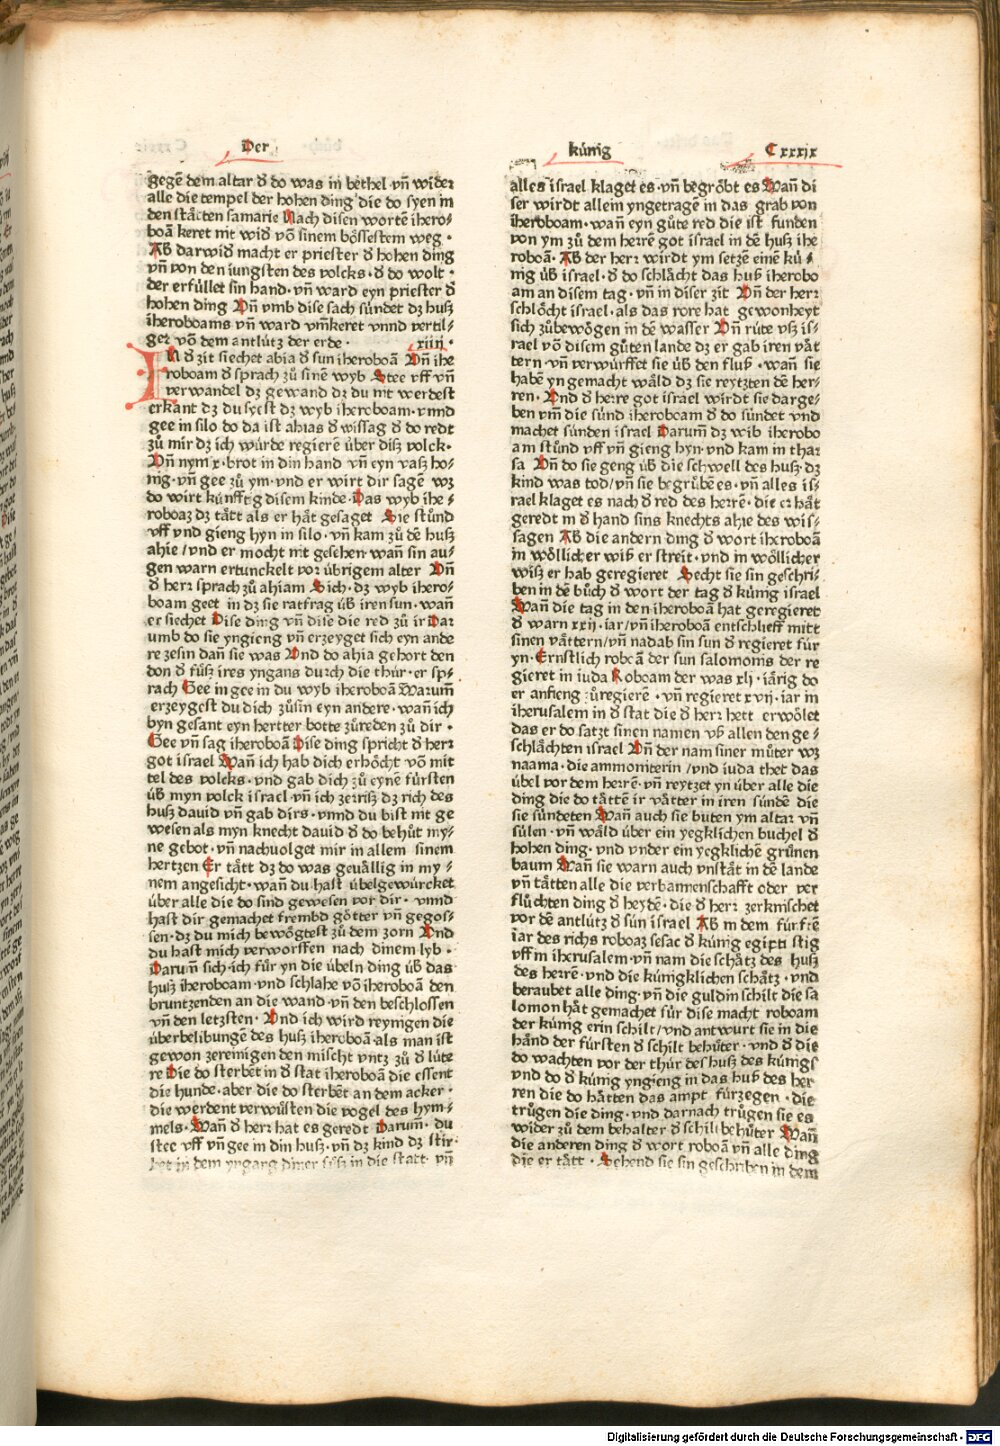 Der
kúnig
C xxxix
gegẽ dem altar ď do was in bethel vñ wider
alle die tempel der hohen ding die do syen in
den stãtten samarie Nach disen wortẽ ihero⸗
boã keret nit wiď võ sinem bössestem weg ·
Aƀ darwiď macht er priester ď hohen ding
vñ von den iungsten des volcks · ď do wolt ·
der erfúllet sin hand · vñ ward eyn priester ď
hohen ding Vñ vmb dise sach súndet dz husz
iheroboams vñ ward vm̃keret vnnd vertil⸗
get võ dem antlútz der erde · xiiij ·
IN ď zit siechet abia ď sun iheroboã Vñ ihe
roboam ď sprach zů sinẽ wyb Stee vff vñ
verwandel dz gewand dz du nit werdest
erkant dz du syest dz wyb iheroboam · vnnd
gee in silo do da ist ahias ď wissag ď do redt
zů mir dz ich wúrde regierẽ úber disz volck·
Vñ nym x · brot in din hand vñ eyn vasz ho⸗
nig · vñ gee zů ym · vnd er wirt dir sagẽ wz
do wirt kúnfftg disem kinde · Das wyb ihe⸗
roboaz dz tått als er håt gesaget Sie stůnd
vff vnd gieng hyn in silo · vñ kam zů dẽ husz
ahie / vnd er mocht nit gesehen wañ sin au⸗
gen warn ertunckelt vor úbrigem alter Vñ
ď herr sprach zů ahiam Sich · dz wyb ihero⸗
boam geet in dz sie ratfrag úƀ iren sun · wañ
er siechet Dise ding vñ dise die red zů ir Dar
umb do sie yngieng vñ erzeyget sich eyn ande
re zesin dañ sie was Vnd do ahia gehort den
don ď fúsz ires yngans durch die thúr · er sp⸗
rach Gee in gee in du wyb iheroboã Warum̃
erzeygest du dich zůsin eyn andere · wañ ich
byn gesant eyn hertter botte zůreden zů dir ·
Gee vñ sag iheroboã Dise ding spricht ď herr
got israel Wañ ich hab dich erhöcht võ mit
tel des volcks · vnd gab dich zů eynẽ fúrsten
úƀ myn volck israel · vñ ich zerrisz dz rich des
husz dauid vñ gab dirs · vmd du bist nit ge
wesen als myn knecht dauid ď do behút my⸗
ne gebot · vñ nachuolget mir in allem sinem
hertzen Er tått dz do was gevållig in my ⸗
nem angesicht · wañ du hast úbelgewúrcket
úber alle die do sind gewesen vor dir · vnnd
hast dir gemachet frembd götter vñ gegos⸗
sen · dz du mich bewögtest zů dem zorn Vnd
du hast mich verworffen nach dinem lyb ·
Darum̃ sich · ich fúr yn die úbeln ding úƀ das
husz iheroboam vnd schlahe võ iheroboã den
bruntzenden an die wand · vñ den beschlossen
vñ den letzsten · Vnd ich wird reynigen die
úberbelibungẽ des husz iheroboã · als man ist
gewon zereinigen den mischt vntz zů ď lúte
re Die do sterbẽt in ď stat iheroboã die essent
die hunde · aber die do sterbẽt an dem acker ·
die werdent verwústen die vogel des hym⸗
mels · Wañ ď herr hat es geredt Darum̃ · du
stee vff vñ gee in din husz · vñ dz kind dz stir
bet in dem yngang diner fúsz in die statt · vñ
alles israel klaget es · vñ begröbt es Wañ di
ser wirdt allein yngetragẽ in das grab von
iheroboam · wañ eyn gúte red die ist funden
von ym zů dem herrẽ got israel in dẽ husz ihe
roboã · Aƀ der herr wirdt ym setzẽ einẽ kú ⸗
nig úƀ israel · ď do schlåcht das husz iherobo
am an disem tag · vñ in diser zit Vñ der herr
schlöcht israel · als das rore hat gewonheyt
sich zúbewögen in dẽ wasser Vñ rúte vsz is⸗
rael võ disem gúten lande dz er gab iren våt
tern · vñ verwúrffet sie úƀ den flusz · wañ sie
habẽ yn gemacht wåld dz sie reytzten dẽ her⸗
ren · Vnd ď herre got israel wirdt sie darge⸗
ben vm̃ die súnd iheroboam ď do súndet vnd
machet súnden israel Darum̃ dz wib iherobo
am stůnd vff vñ gieng hyn · vnd kam in thar
sa Vñ do sie geng úƀ die schwell des husz · dz
kind was tod / vñ sie begrúbẽ es · vñ alles is⸗
rael klaget es nach ď red des herrẽ · die er håt
geredt in ď hand sins knechts ahie des wis⸗
sagen Aƀ die andern ding ď wort iheroboã
in wöllicher wisz er streit · vnd in wöllicher
wisz er hab geregieret Secht sie sin geschri⸗
ben in dẽ bůch ď wort der tag ď kúnig israel
Wañ die tag in den iheroboã hat geregieret
ď warn xxij · iar / vñ iheroboã entschlieff mitt
sinen våttern / vñ nadab sin sun ď regieret fúr
yn · Ernstlich roboã der sun salomonis der re
gieret in iuda Roboam der was xlj · iårig do
er anfieng zůregierẽ · vñ regieret xvij · iar in
iherusalem in ď stat die ď herr hett erwölet
das er do satzt sinen namen vsz allen den ge⸗
schlåchten israel Vñ der nam siner můter wz
naama · die ammoniterin / vnd iuda thet das
úbel vor dem herrẽ · vñ reytzet yn úber alle die
ding die do tåttẽ ir våtter in iren súndẽ die
sie súndeten Wañ auch sie buten ym altar vñ
súlen · vñ wåld úber ein yegklichen buchel ď
hohen ding · vnd vnder ein yegklichẽ grúnen
baum Wañ sie warn auch vnståt in dẽ lande
vñ tåtten alle die verbannenschafft oder ver
flúchten ding ď heydẽ · die ď herr zerknischet
vor dẽ antlútz ď sún israel Aƀ in dem fúnfftẽ
iar des richs roboaz sesac ď kúnig egipti stig
vff in iherusalem · vñ nam die schåtz des husz
des herrẽ · vnd die kúnigklichen schåtz · vnd
beraubet alle ding · vñ die guldin schilt die sa
lomon håt gemachet fúr dise macht roboam
der kúnig erin schilt / vnd antwurt sie in die
hånd der fúrsten ď schilt behúter · vnd ď die
do wachten vor der thúr des husz des kúnigs
vnd do ď kúnig yngieng in das husz des her
ren die do håtten das ampt fúrzegen · die
trůgen die ding · vnd darnach trůgen sie es
wider zů dem behalter ď schilt behúter Wañ
die anderen ding ď wort roboã vñ alle ding
die er tått · Sehend sie sin geschriben in dem
Digitalisierung gefördert durch die Deutsche Forschungsgemeinschaft - DFG